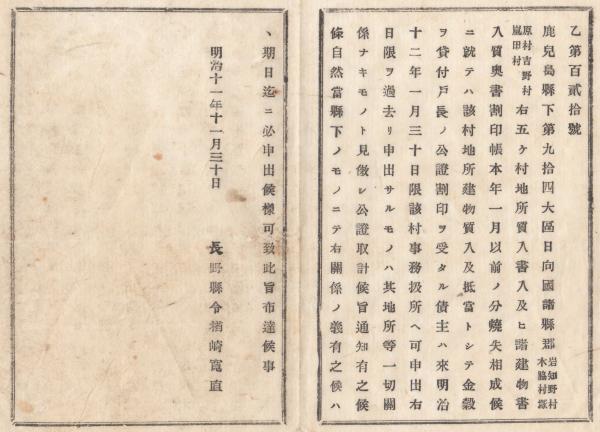 乙第百貳拾號
鹿兒島縣下第九拾四大區日向國諸縣郡岩知野村木脇村塚
原村吉野村嵐田村右五ケ村地所質入書入及ヒ諸建物書
入質奥書割印帳本年一月以前ノ分燒失相成候
ニ就テハ該村地所建物質入及抵當トシテ金穀
ヲ貸付戸長ノ公證割印ヲ受タル債主ハ來明治
十二年一月三十日限該村事務扱所ヘ可申出右
日限ヲ過去リ申出サルモノハ其地所等一切關
係ナキモノト見做シ公證取計候旨通知有之候
條自然當縣下ノモノニテ右關係ノ義有之候ハ
丶期日迄ニ必申出候樣可致此旨布達候事
明治十一年十一月三十日　長野縣令楢崎寛直